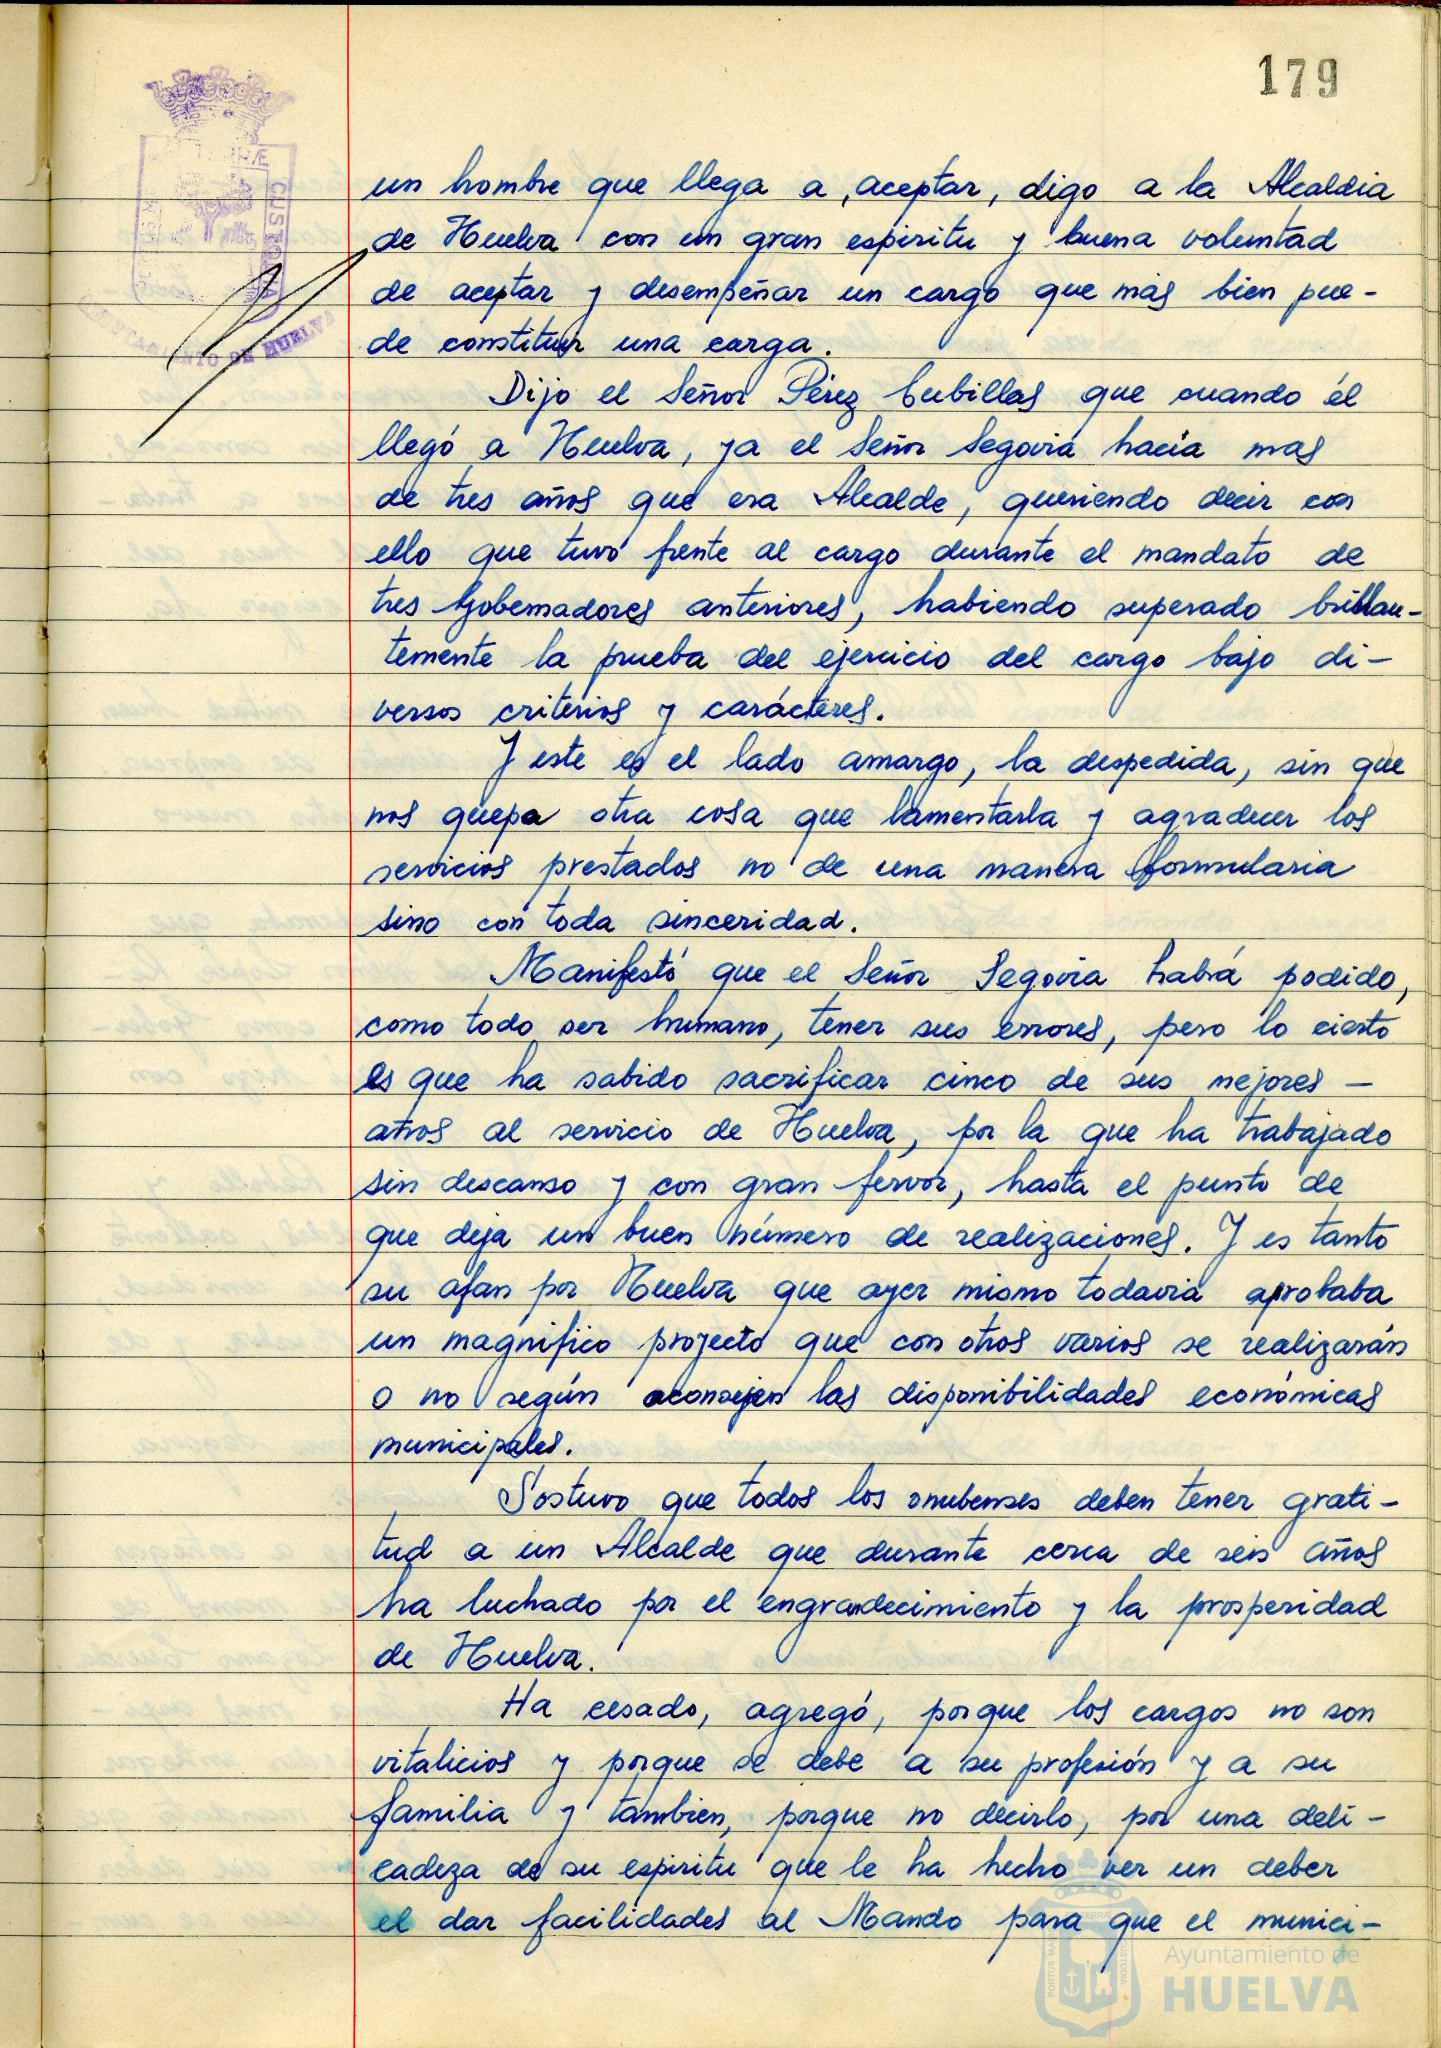 179
un hombre que llega a, aceptar, digo a la Alcaldia
de Huelva con un gran espiritu y buena voluntad
de aceptar y desempeñar un cargo que mas bien pue-
de constituir una carga.
Dijo el Señor Pérez Cubillas que cuando él
llegó a Huelva, ya el Señor Segovia hacía mas
de tres años que era Alcalde, queriendo decir con
ello que tuvo frente al cargo durante el mandato de
tres Gobernadores anteriores, habiendo superado brillan-
temente la prueba del ejercicio del cargo bajo di-
versos criterios y carácteres.
Y este es el lado amargo, la despedida, sin que
nos quepa otra cosa que lamentarla y agradecer los
servicios prestados no de una manera formularia
sino con toda sinceridad.
Manifestó que el Señor Segovia habrá podido,
como todo ser humano, tener sus errores, pero lo cierto
es que ha sabido sacrificar cinco de sus mejores -
años al servicio de Huelva, por la que ha trabajado
sin descanso y con gran fervor, hasta el punto de
que deja un buen número de realizaciones. Y es tanto
su afan por Huelva que ayer mismo todavia aprobaba
un magnifico proyecto que con otros varios se realizarán
o no según aconsejen las disponibilidades económicas
municipales.
Sostuvo que todos los onubenses deben tener grati-
tud a un Alcalde que durante cerca de seis años
ha luchado por el engrandecimiento y la prosperidad
de Huelva.
Ha cesado, agregó, porque los cargos no son
vitalicios y porque se debe a su profesión y a su
familia y tambien, porque no decirlo, por una deli-
cadeza de su espiritu que le ha hecho ver un deber
el dar facilidades al Mando para que el munici-
CUSTODIA
AYUNTAMIENTO DE HUELVA
Ayuntamiento de
HUELVA